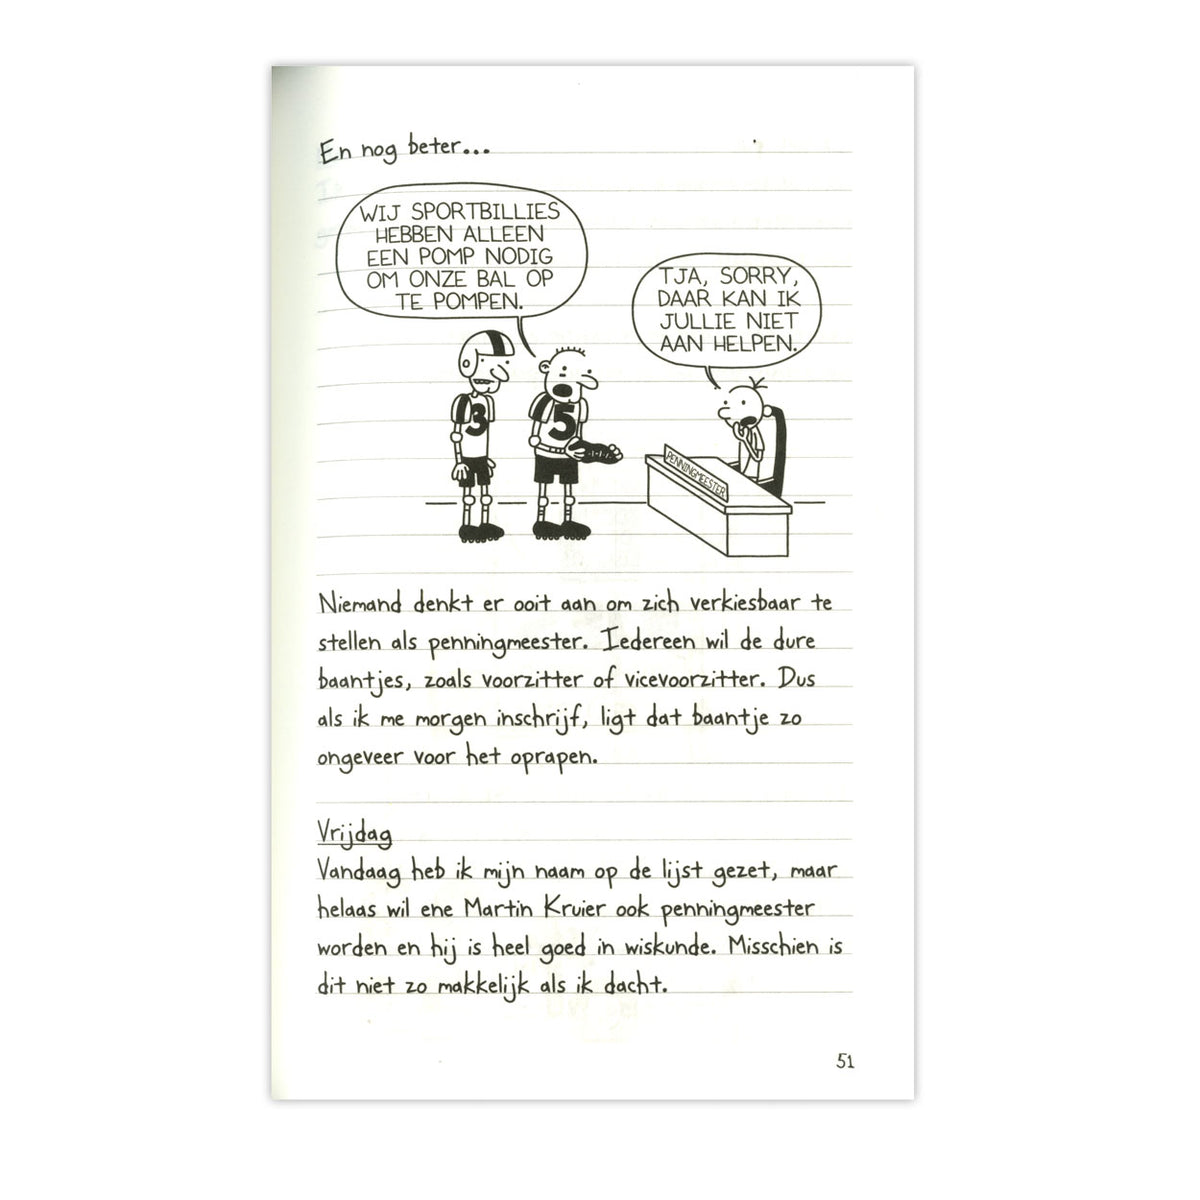 En nog beter...
WIJ SPORTBILLIES
HEBBEN ALLEEN
EEN POMP NODIG
OM ONZE BAL OP
TE POMPEN.
TJA, SORRY,
DAAR KAN IK
JULLIE NIET
AAN HELPEN.
3
5
PENNINGMEESTER
Niemand denkt er ooit aan om zich verkiesbaar te
stellen als penningmeester. Iedereen wil de dure
baantjes, zoals voorzitter of vicevoorzitter. Dus
als ik me morgen inschrijf, ligt dat baantje zo
ongeveer voor het oprapen.
Vrijdag
Vandaag heb ik mijn naam op de lijst gezet, maar
helaas wil ene Martin Kruier ook penningmeester
worden en hij is heel goed in wiskunde. Misschien is
dit niet zo makkelijk als ik dacht.
51